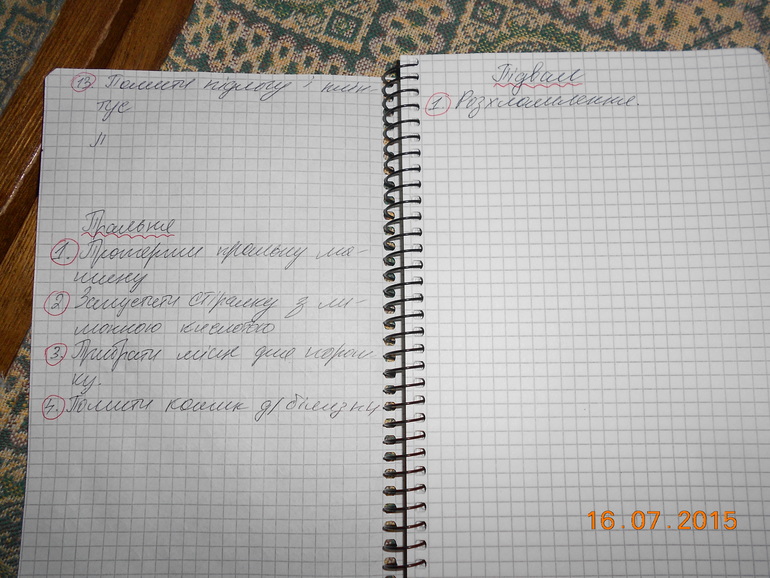 13. Помити підлогу і плін-
тус
Пральня
1. Протерти пральну ма-
шину
2. Запустити стіралку з ли-
монною кислотою
3. Прибрати місце для порош-
ку.
4. Помити кошик д/білизни
Підвал
1. Розхламлення.
16.07.2015